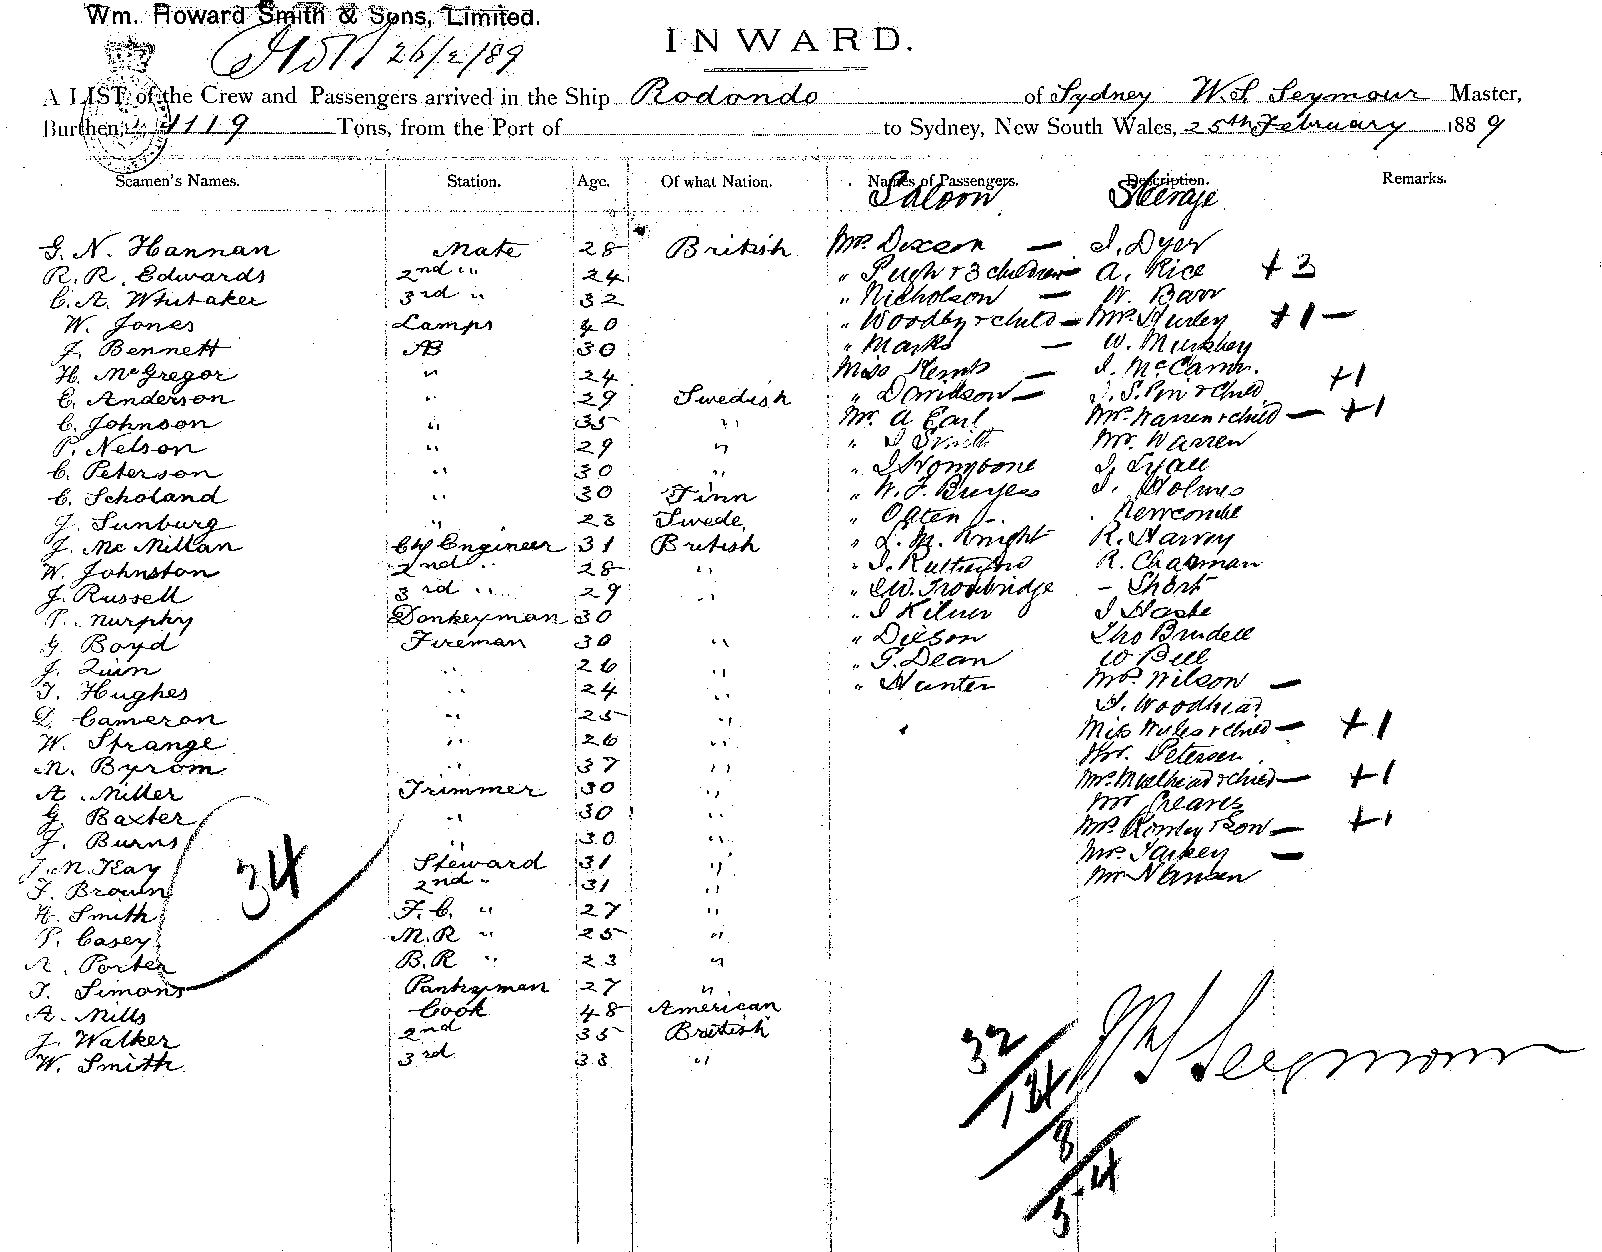 Wm. Howard Smith & Sons, Limited.
26/2/89
INWARD.
A LIST of the Crew and Passengers arrived in the Ship Rodondo of Sydney W.S. Seymour Master,
Burthen, 1119 Tons, from the Port of to Sydney, New South Wales, 25th February 1889
Seamen's Names. Station. Age. Of what Nation. Names of Passengers. Description. Remarks.
Saloon Steerage
G. N. Hannan Mate 28 British Mrs. Dixson — J. Dyer
R. R. Edwards 2nd " 24 " Pugh & 3 children — A. Rice + 3
C. A. Whitaker 3rd " 32 " Nicholson — W. Barr
W. Jones Lamps 40 " Woodby & child — Mrs. Hurley + 1 —
J. Bennett AB 30 " Marks — W.
H. McGregor " 24 Miss Kemb — J. McCann
C. Anderson " 29 Swedish " Davidson — & Child + 1
C. Johnson " 35 " Mr. A Earl Mrs. Warren & child — + 1
P. Nelson " 29 " " J Smith Mr. Warren
C. Peterson " 30 " " J Honybone J. Lyall
C. Scholand " 30 Finn " W. F. Burgess J. Holmes
J. Sunburg " 23 Swede " Newcombe
J. McMillan Chf Engineer 31 British " L. M. Knight R. Harvey
W. Johnston 2nd " 28 " " J. R. Chapman
J. Russell 3rd " 29 " " Trowbridge - Short
P. Murphy Donkeyman 30 " J Kilner J Haste
G. Boyd Fireman 30 " " Dickson Tho Brudell
J. Quin " 26 " " G. Dean W Bell
T. Hughes " 24 " " Hunter Mrs. Wilson —
D. Cameron " 25 " J. Woodhead
W. Strange " 26 " Miss & child — + 1
M. Byrom " 37 " Mr. Petersen
A. Miller Trimmer 30 " Mrs. & child — + 1
G. Baxter " 30 " Mr Greaves
J. Burns " 30 " Mrs. Rowley & Son — + 1
J. M. Kay Steward 31 " Mrs. —
F. Brown 2nd " 31 " Mr
34
H. Smith F.C. " 27 "
P. Casey M.R " 25 "
A. Porter B.R " 23 "
T. Simons Pantryman 27 "
A. Mills Cook 48 American
J. Walker 2nd 35 British
W. Smith 3rd 33 "
32
W S Seymour
14
8
54